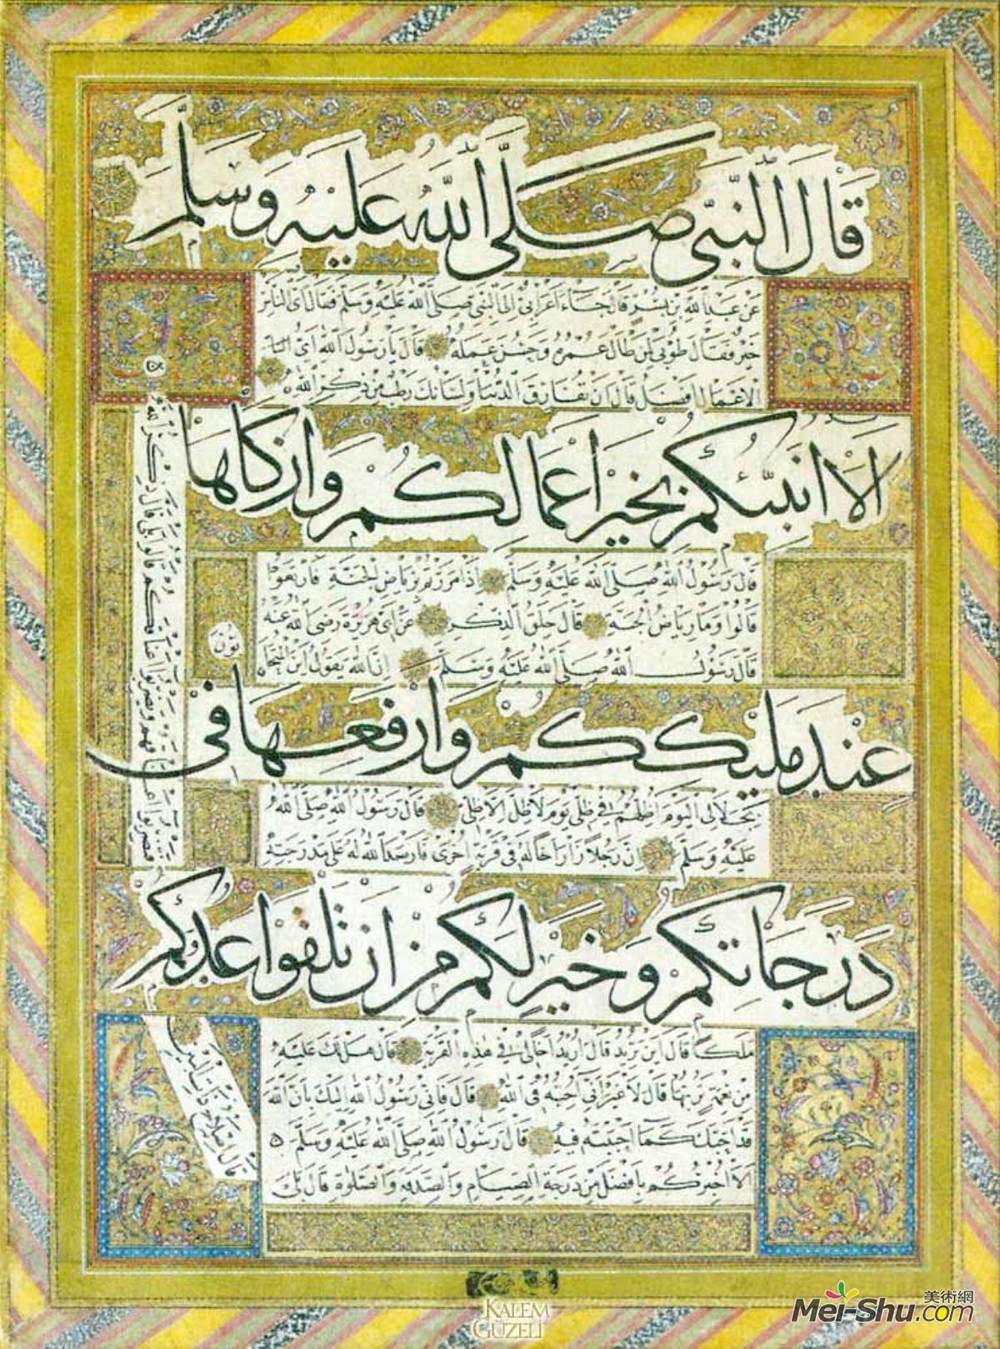 قَالَ النَّبِيُّ صَلَّى اللهُ عَلَيْهِ وَسَلَّمَ
عن عبد الله بن بسر قال جاء اعرابي الى النبي صلى الله عليه وسلم فقال اى الناس
خير فقال طوبى لمن طال عمره وحسن عمله قال يا رسول الله اى
الاعمال افضل قال ان تفارق الدنيا ولسانك رطب من ذكر الله
اَلَا اُنَبِّئُكُمْ بِخَيْرِ اَعْمَالِكُمْ وَاَزْكَاهَا
قال رسول الله صلى الله عليه وسلم اذا مررتم برياض الجنة فارتعوا
قالوا وما رياض الجنة قال حلق الذكر عن ابى هريرة رضى الله عنه
قال رسول الله صلى الله عليه وسلم ان الله يقول اين المتحابون
عِنْدَ مَلِيكِكُمْ وَاَرْفَعِهَا فِى
بجلالى اليوم اظلهم فى ظلى يوم لا ظل الا ظلى قال رسول الله صلى الله
عليه وسلم ان رجلا زار اخا له فى قرية اخرى فارصد الله له على مدرجته
دَرَجَاتِكُمْ وَخَيْرٍ لَكُمْ مِنْ اَنْ تَلْقَوْا عَدُوَّكُمْ
ملكا قال اين تريد قال اريد اخا لى فى هذه القرية قال هل لك عليه
من نعمة تربها قال لا غير انى احببته فى الله قال فانى رسول الله اليك بان الله
قد احبك كما احببته فيه قال رسول الله صلى الله عليه وسلم
الا اخبركم بافضل من درجة الصيام والصدقة والصلوة قال بلى
فتضربوا اعناقهم ويضربوا اعناقكم قالوا بلى قال ذكر الله
قال اصلاح ذات البين
KALEM
GÜZELİ
美術網
Mei-Shu.com